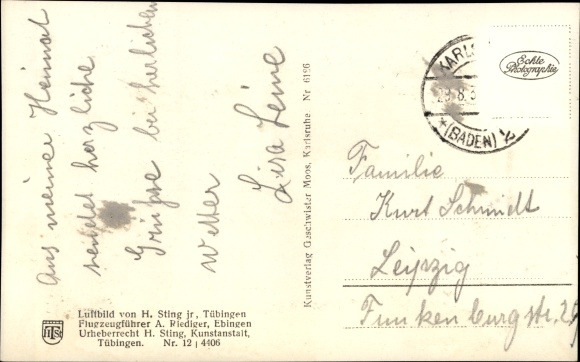 Aus meiner Heimat
sendet herzliche
Grüsse bei herlichem
Wetter
Lisa Leine
Kunstverlag Geschwister Moos, Karlsruhe Nr 6126
KARLS
(BADEN)
Echte
Photographie
Familie
Kurt Schmidt
Leipzig
Funkenburgstr.
Luftbild von H. Sting jr, Tübingen
Flugzeugführer A. Riediger, Ebingen
Urheberrecht H. Sting, Kunstanstalt,
Tübingen. Nr. 12 | 4406